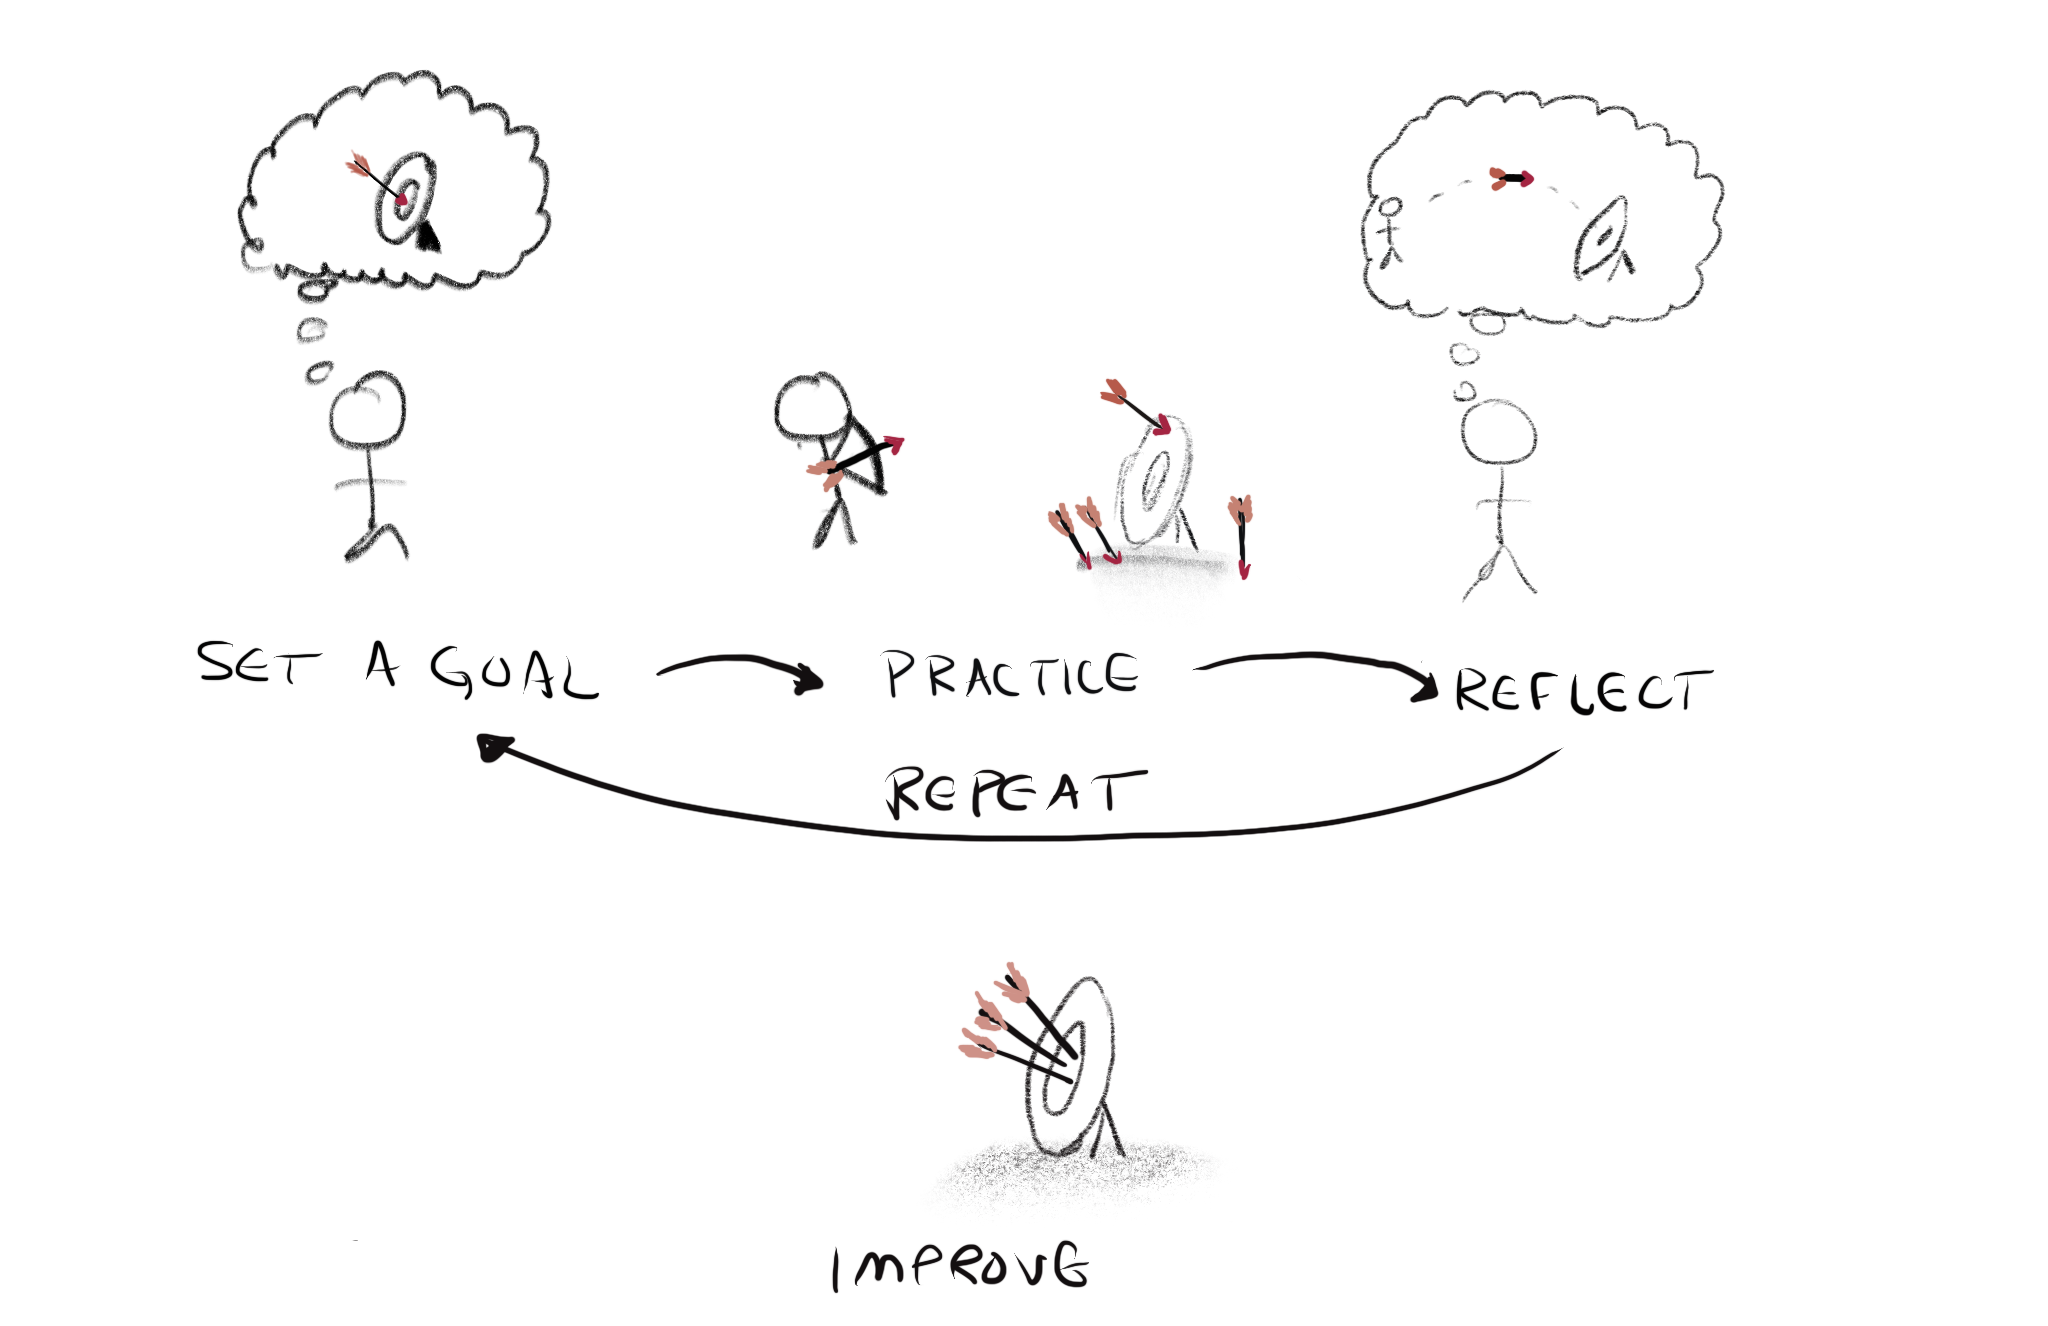 SET A GOAL
PRACTICE
REFLECT
REPEAT
IMPROVE